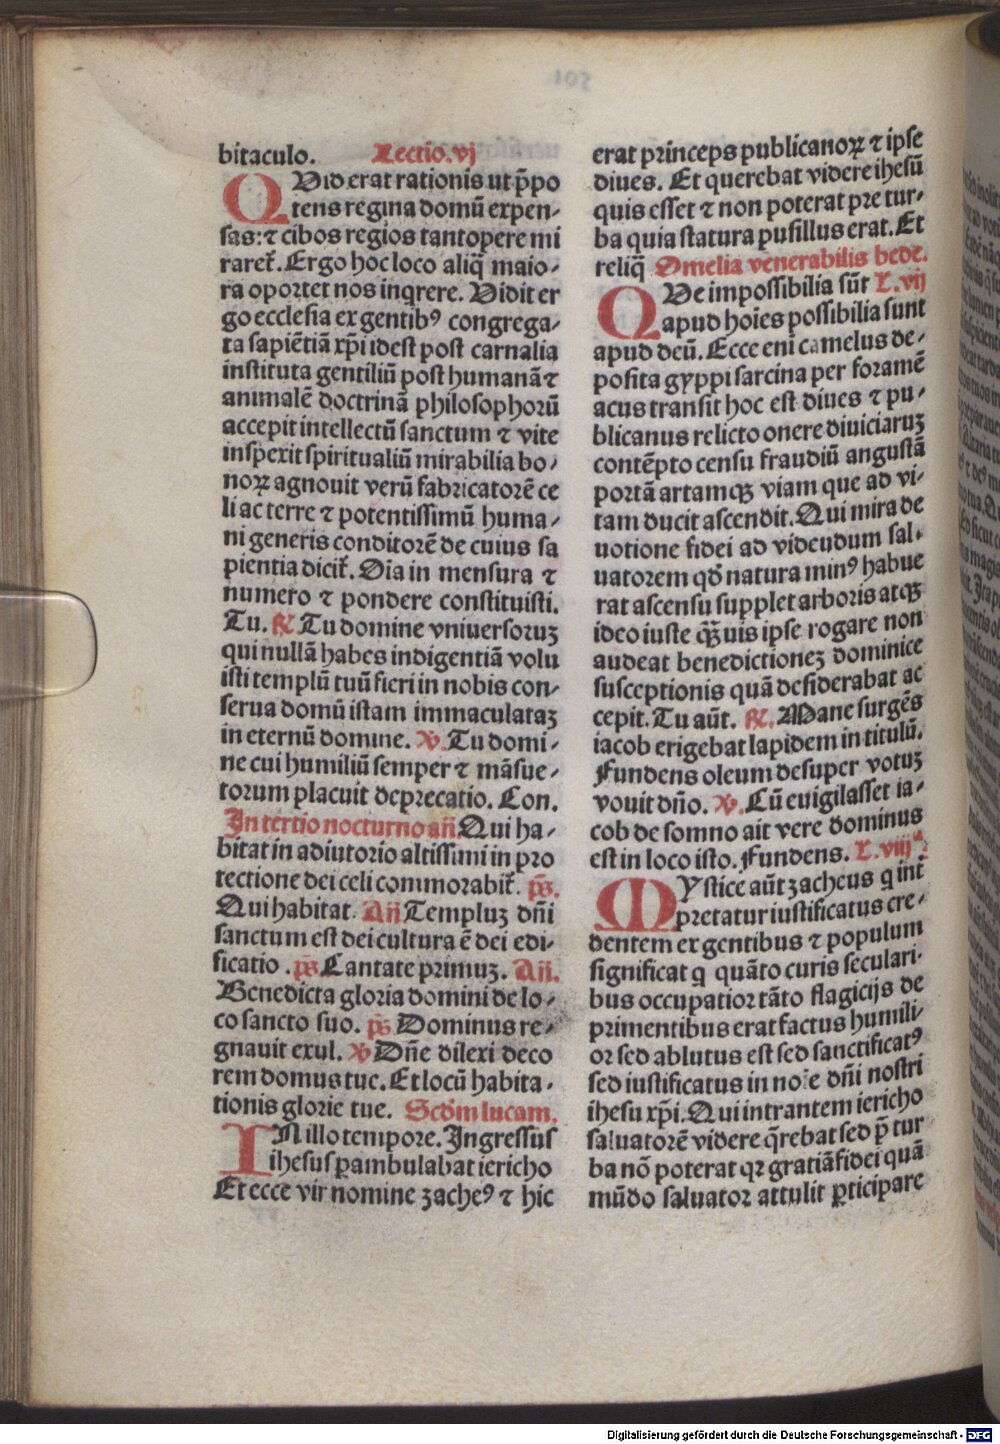 bitaculo. Lectio.vj
QVid erat rationis ut p̄po
tens regina domū expen-
sas: ⁊ cibos regios tantopere mi
raret᷑. Ergo hoc loco aliq̄ maio-
ra oportet nos inqrere. Vidit er
go ecclesia ex gentibꝰ congrega-
ta sapiētiā xp̄i idest post carnalia
instituta gentiliū post humanā ⁊
animalē doctrinā philosophorū
accepit intellectū sanctum ⁊ vite
inspexit spiritualiū mirabilia bo-
noꝝ agnouit verū fabricatorē ce
li ac terre ⁊ potentissimū huma-
ni generis conditorē de cuius sa
pientia dicit᷑. Oīa in mensura ⁊
numero ⁊ pondere constituisti.
Tu. ℟. Tu domine vniuersoruꝫ
qui nullā habes indigentiā volu
isti templū tuū fieri in nobis con-
serua domū istam immaculataꝫ
in eternū domine. ℣. Tu domi-
ne cui humiliū semper ⁊ māsue-
torum placuit deprecatio. Con.
In tertio nocturno an̄. Qui ha-
bitat in adiutorio altissimi in pro
tectione dei celi commorabit᷑. ps̄.
Qui habitat. An̄ Templuꝫ dn̄i
sanctum est dei cultura ē dei edi-
ficatio. ps̄ Cantate primuꝫ. An̄.
Benedicta gloria domini de lo-
co sancto suo. ps̄ Dominus re-
gnauit exul. ℣ Dn̄e dilexi deco
rem domus tue. Et locū habita-
tionis glorie tue. Scd̄m lucam.
IN illo tempore. Ingressus
ihesus ꝑambulabat iericho
Et ecce vir nomine zacheꝰ ⁊ hic
erat princeps publicanoꝝ ⁊ ipse
diues. Et querebat videre ihesū
quis esset ⁊ non poterat pre tur-
ba quia statura pusillus erat. Et
reliq̄ Omelia venerabilis bede.
QVe impossibilia sūt L.vij
apud hoīes possibilia sunt
apud deū. Ecce eni camelus de-
posita gyppi sarcina per foramē
acus transit hoc est diues ⁊ pu-
blicanus relicto onere diuiciaruꝫ
contēpto censu fraudiū angustā
portā artamqꝫ viam que ad vi-
tam ducit ascendit. Qui mira de
uotione fidei ad videudum sal-
uatorem qd̄ natura minꝰ habue
rat ascensu supplet arboris atqꝫ
ideo iuste qꝫuis ipse rogare non
audeat benedictioneꝫ dominice
susceptionis quā desiderabat ac
cepit. Tu aūt. ℟. Mane surgēs
iacob erigebat lapidem in titulū.
Fundens oleum desuper votuꝫ
vouit dn̄o. ℣. Cū euigilasset ia-
cob de somno ait vere dominus
est in loco isto. Fundens. L.viij
MYstice aūt zacheus q int᷑
pretatur iustificatus cre-
dentem ex gentibus ⁊ populum
significat q quāto curis seculari-
bus occupatior tāto flagicijs de
primentibus erat factus humili-
or sed ablutus est sed sanctificatꝰ
sed iustificatus in noīe dn̄i nostri
ihesu xp̄i. Qui intrantem iericho
saluatorē videre q̄rebat sed p̄ tur
ba nō poterat qꝛ gratiā fidei quā
mūdo saluator attulit ꝑticipare
Digitalisierung gefördert durch die Deutsche Forschungsgemeinschaft - DFG